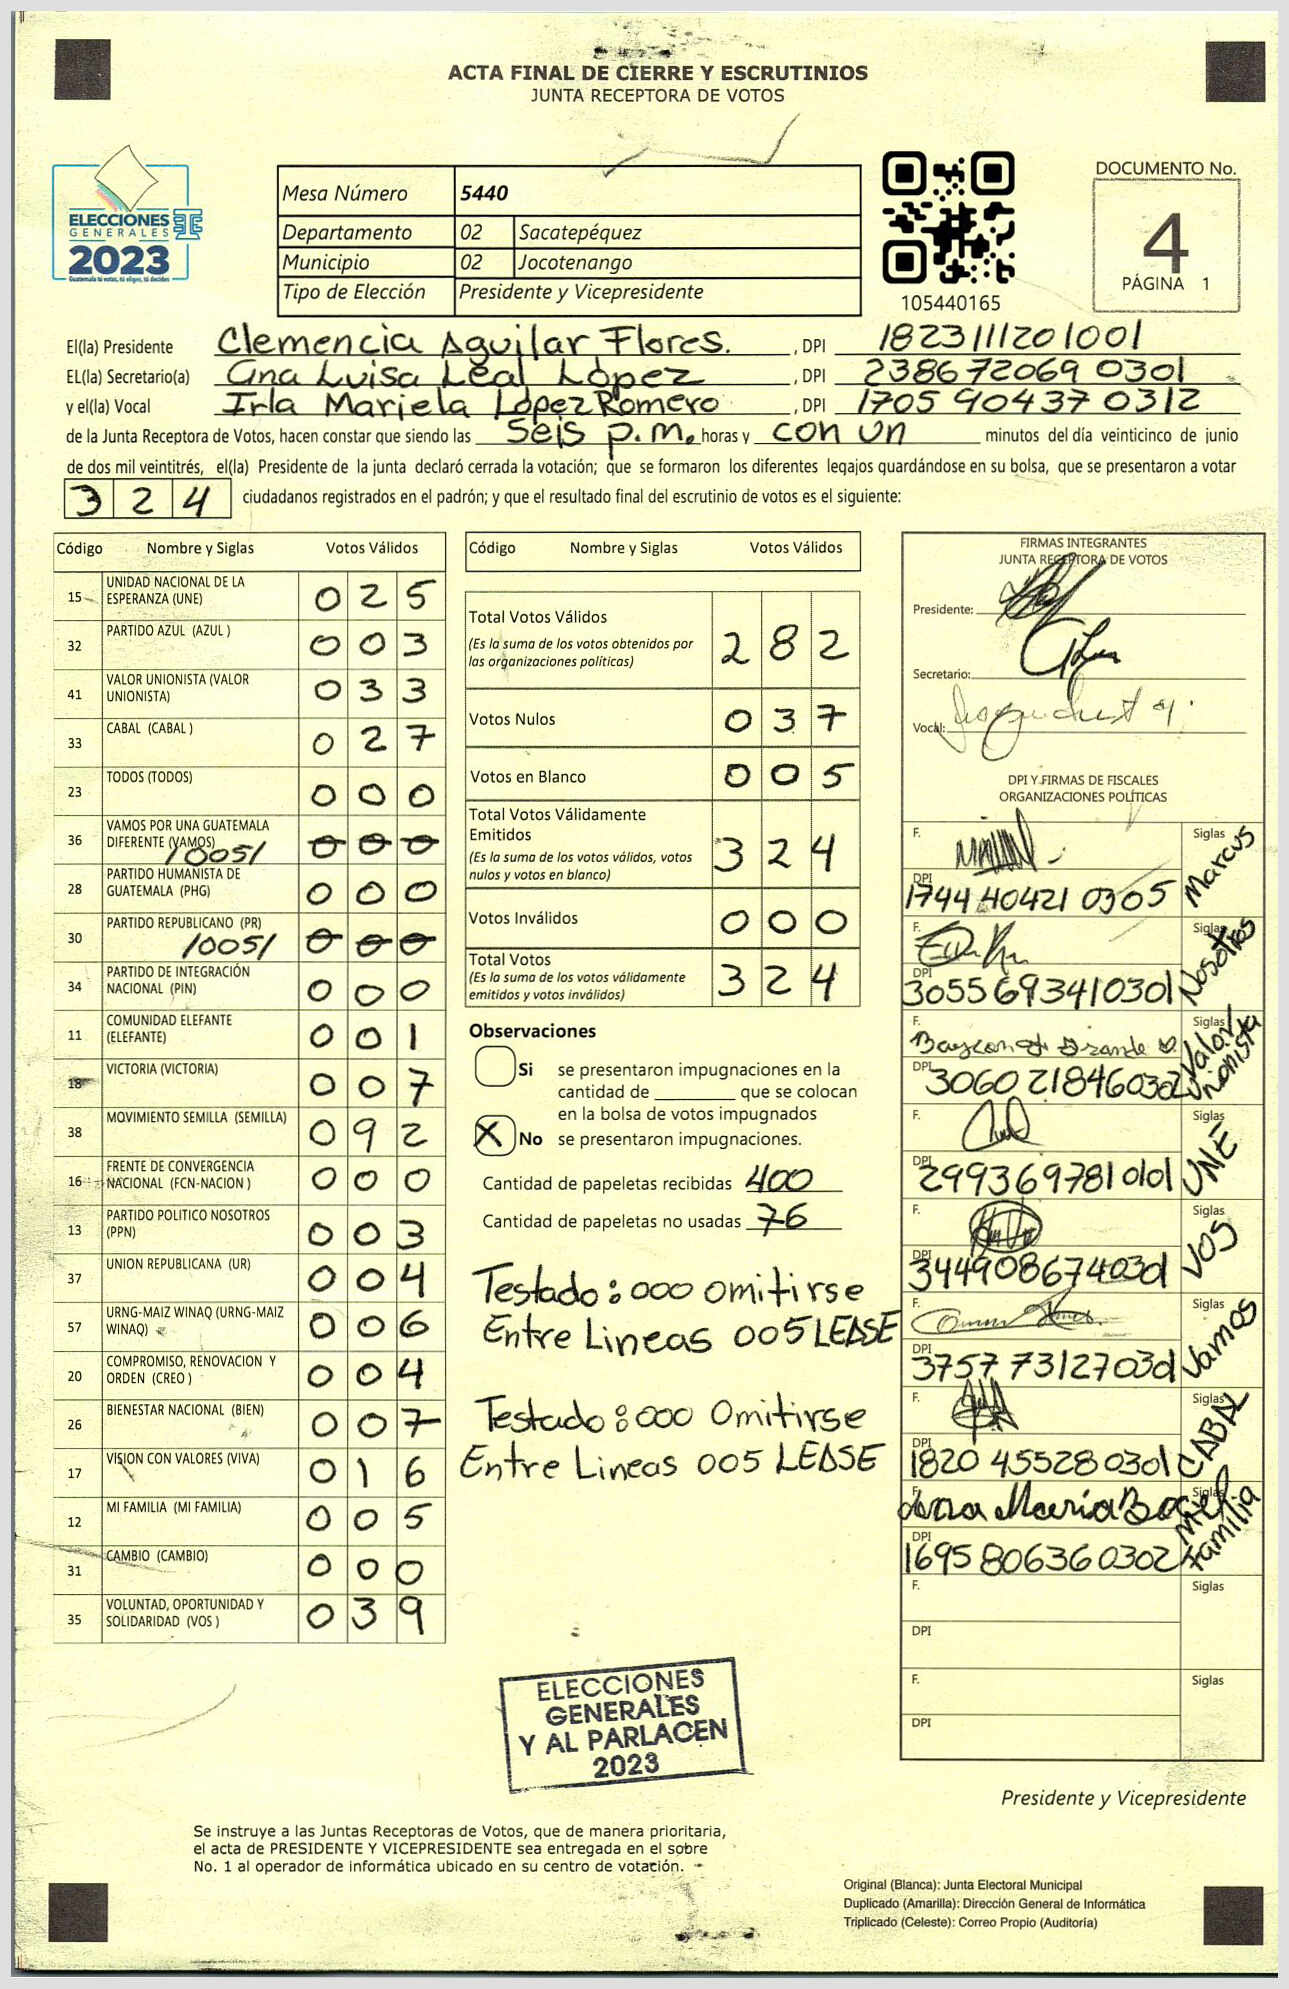 ACTA FINAL DE CIERRE Y ESCRUTINIOS
JUNTA RECEPTORA DE VOTOS
ELECCIONES
GENERALES
2023
Guatemala tú votas, tú eliges, tú decides
Mesa Número 5440
Departamento 02 Sacatepéquez
Municipio 02 Jocotenango
Tipo de Elección Presidente y Vicepresidente
105440165
DOCUMENTO No.
4
PÁGINA 1
El(la) Presidente Clemencia Aguilar Flores. , DPI 1823111201001
EL(la) Secretario(a) Ana Luisa Leal López , DPI 2386 72069 0301
y el(la) Vocal Irla Mariela López Romero , DPI 1705 90437 0312
de la Junta Receptora de Votos, hacen constar que siendo las seis p.m. horas y con un minutos del día veinticinco de junio
de dos mil veintitrés, el(la) Presidente de la junta declaró cerrada la votación; que se formaron los diferentes legajos guardándose en su bolsa, que se presentaron a votar
3 2 4 ciudadanos registrados en el padrón; y que el resultado final del escrutinio de votos es el siguiente:
Código Nombre y Siglas Votos Válidos
15 UNIDAD NACIONAL DE LA ESPERANZA (UNE) 0 2 5
32 PARTIDO AZUL (AZUL ) 0 0 3
41 VALOR UNIONISTA (VALOR UNIONISTA) 0 3 3
33 CABAL (CABAL ) 0 2 7
23 TODOS (TODOS) 0 0 0
36 VAMOS POR UNA GUATEMALA DIFERENTE (VAMOS) /005/ 0 0 0
28 PARTIDO HUMANISTA DE GUATEMALA (PHG) 0 0 0
30 PARTIDO REPUBLICANO (PR) /005/ 0 0 0
34 PARTIDO DE INTEGRACIÓN NACIONAL (PIN) 0 0 0
11 COMUNIDAD ELEFANTE (ELEFANTE) 0 0 1
18 VICTORIA (VICTORIA) 0 0 7
38 MOVIMIENTO SEMILLA (SEMILLA) 0 9 2
16 FRENTE DE CONVERGENCIA NACIONAL (FCN-NACION ) 0 0 0
13 PARTIDO POLITICO NOSOTROS (PPN) 0 0 3
37 UNION REPUBLICANA (UR) 0 0 4
57 URNG-MAIZ WINAQ (URNG-MAIZ WINAQ) 0 0 6
20 COMPROMISO, RENOVACION Y ORDEN (CREO ) 0 0 4
26 BIENESTAR NACIONAL (BIEN) 0 0 7
17 VISION CON VALORES (VIVA) 0 1 6
12 MI FAMILIA (MI FAMILIA) 0 0 5
31 CAMBIO (CAMBIO) 0 0 0
35 VOLUNTAD, OPORTUNIDAD Y SOLIDARIDAD (VOS ) 0 3 9
Código Nombre y Siglas Votos Válidos
Total Votos Válidos 2 8 2
(Es la suma de los votos obtenidos por
las organizaciones políticas)
Votos Nulos 0 3 7
Votos en Blanco 0 0 5
Total Votos Válidamente
Emitidos 3 2 4
(Es la suma de los votos válidos, votos
nulos y votos en blanco)
Votos Inválidos 0 0 0
Total Votos 3 2 4
(Es la suma de los votos válidamente
emitidos y votos inválidos)
Observaciones
Si se presentaron impugnaciones en la
cantidad de ________ que se colocan
en la bolsa de votos impugnados
X No se presentaron impugnaciones.
Cantidad de papeletas recibidas 400
Cantidad de papeletas no usadas 76
Testado: 000 omitirse
Entre Lineas 005 LEASE
Testado: 000 Omitirse
Entre Lineas 005 LEASE
FIRMAS INTEGRANTES
JUNTA RECEPTORA DE VOTOS
Presidente:
Secretario:
Vocal:
DPI Y FIRMAS DE FISCALES
ORGANIZACIONES POLÍTICAS
F. Siglas Marcus
DPI 1744 40421 0305
F. Siglas Nosotros
DPI 3055 69341 0301
F. Siglas Valor Unionista
DPI 3060 21846 0302
F. Siglas UNE
DPI 2993697810101
F. Siglas VOS
DPI 3449086740301
F. Siglas Vamos
DPI 3757 73127 0301
F. Siglas CABAL
DPI 1820 45528 0301
F. Ana María Siglas Mi Familia
DPI 1695 80636 0302
F. Siglas
DPI
F. Siglas
DPI
ELECCIONES
GENERALES
Y AL PARLACEN
2023
Presidente y Vicepresidente
Se instruye a las Juntas Receptoras de Votos, que de manera prioritaria,
el acta de PRESIDENTE Y VICEPRESIDENTE sea entregada en el sobre
No. 1 al operador de informática ubicado en su centro de votación.
Original (Blanca): Junta Electoral Municipal
Duplicado (Amarilla): Dirección General de Informática
Triplicado (Celeste): Correo Propio (Auditoría)